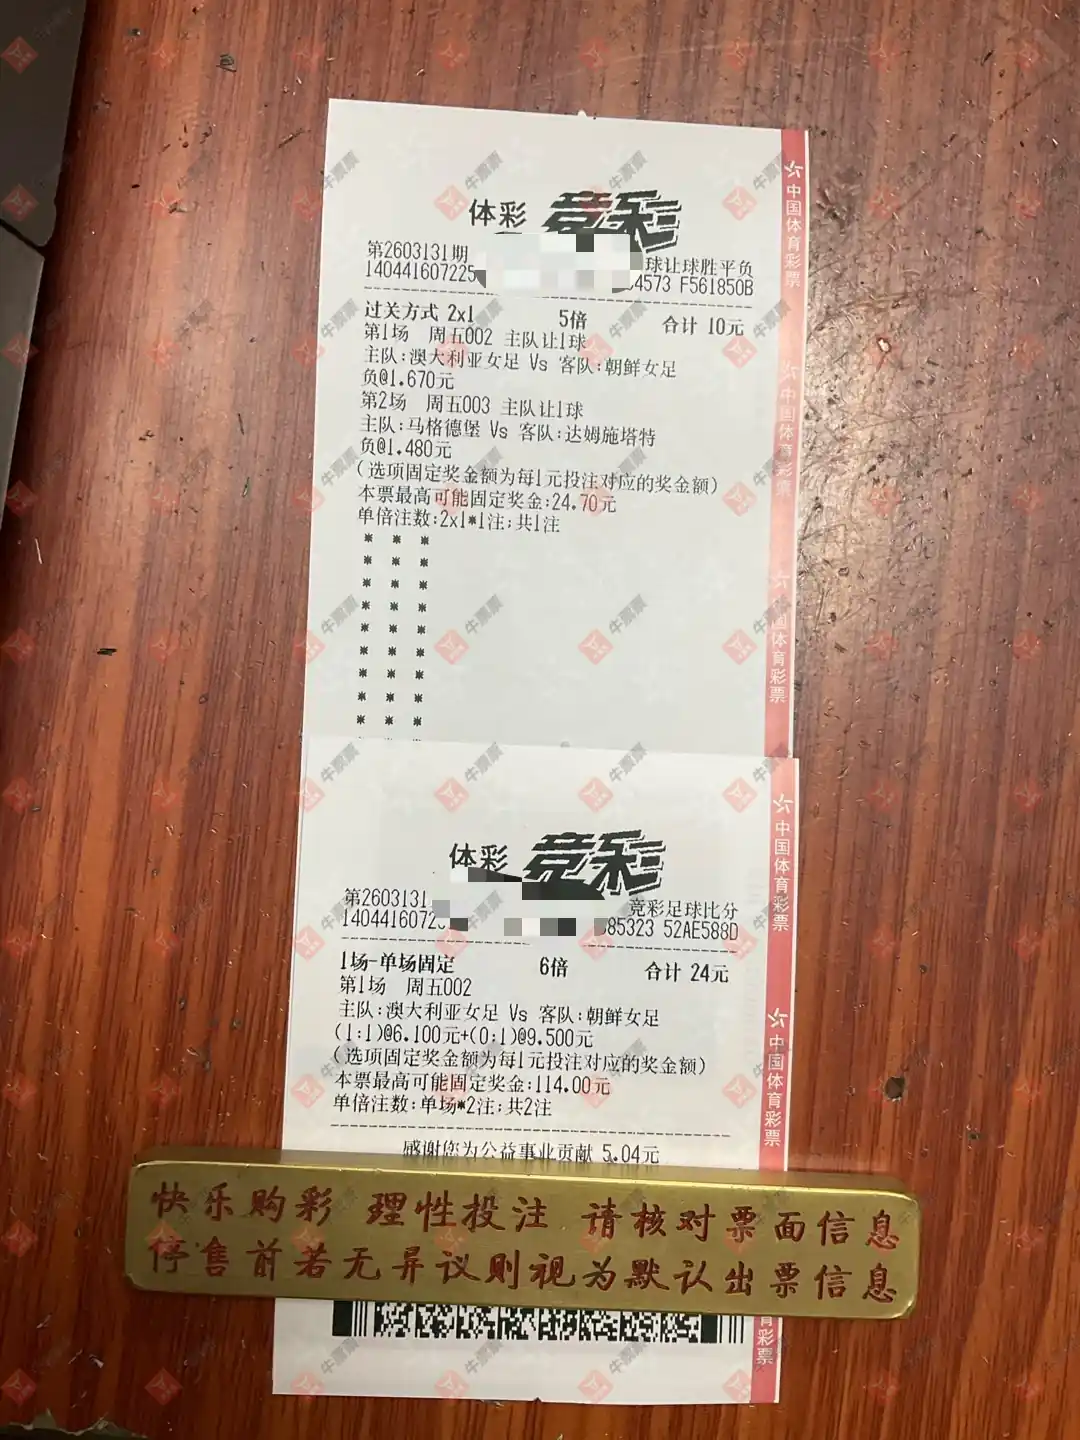 体彩 竞彩
第2603131期
球让球胜平负
140441607225
34573 F561850B
过关方式 2x1 5倍 合计 10元
第1场 周五002 主队让1球
主队:澳大利亚女足 Vs 客队:朝鲜女足
负@1.670元
第2场 周五003 主队让1球
主队:马格德堡 Vs 客队:达姆施塔特
负@1.480元
(选项固定奖金额为每1元投注对应的奖金额)
本票最高可能固定奖金:24.70元
单倍注数:2x1*1注;共1注
* * *
* * *
* * *
* * *
* * *
* * *
* * *
* * *
* * *
体彩 竞彩
第2603131
竞彩足球比分
1404416072
85323 52AE588D
1场-单场固定 6倍 合计 24元
第1场 周五002
主队:澳大利亚女足 Vs 客队:朝鲜女足
(1:1)@6.100元+(0:1)@9.500元
(选项固定奖金额为每1元投注对应的奖金额)
本票最高可能固定奖金:114.00元
单倍注数:单场*2注;共2注
感谢您为公益事业贡献 5.04元
快乐购彩 理性投注 请核对票面信息
停售前若无异议则视为默认出票信息
中国体育彩票
中国体育彩票
中国体育彩票
中国体育彩票
中国体育彩票
育彩票
牛票票